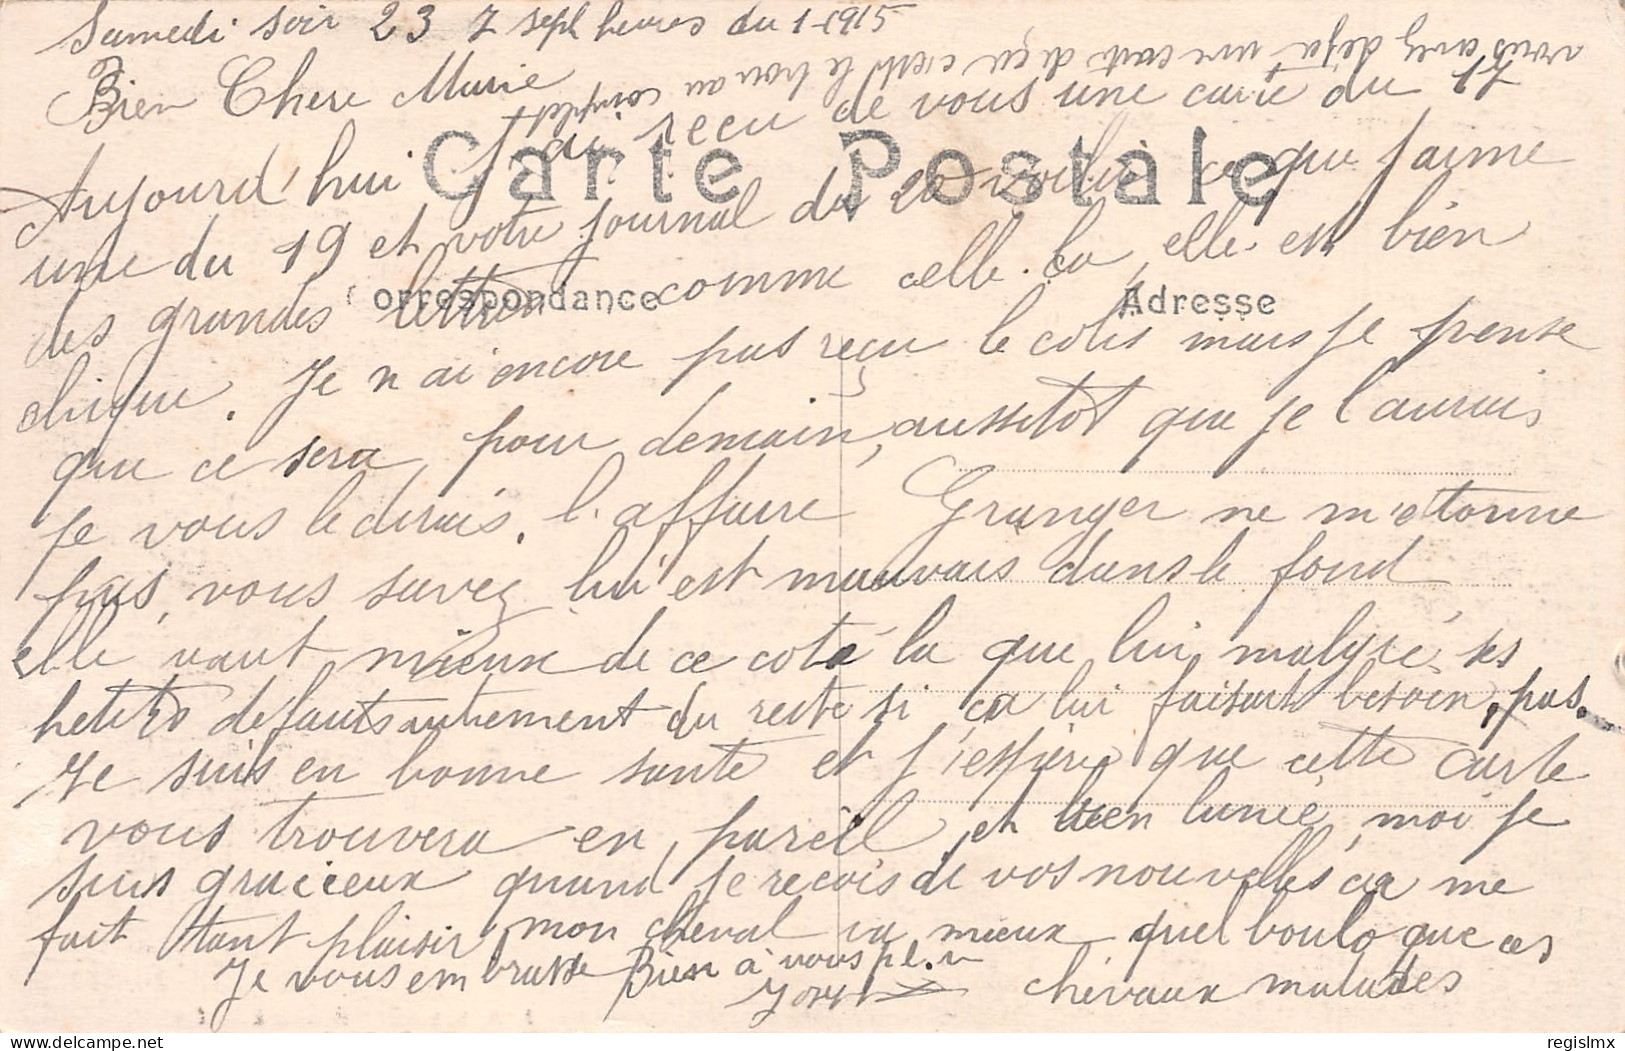 Samedi soir 23 7 sept heures du 1-1915
vous avez déja une carte deça c'est le bon au complet
Bien Chere Marie
Aujourd'hui J'ai recu de vous une carte du 17
Carte Postale
une du 19 et votre journal du 20 voila ce que J'aime
des grandes lettres comme celle la, elle est bien
Correspondance
Adresse
chique. Je n'ai encore pas reçu le colis mais Je pense
que ce sera pour demain, aussitot que Je l'aurais
Je vous le dirais. l'affaire Granger ne m'etonne
pas, vous savez lui est mauvais dans le fond
elle vaut mieux de ce coté la que lui malgré ses
petits defauts autrement du reste si ca lui faisait besoin, pas.
Je suis en bonne sante et J'espère que cette carte
vous trouvera en pareil, et bien lunée, moi Je
suis gracieux quand Je recois de vos nouvelles ca me
fait tant plaisir, mon cheval va mieux quel boulo que ces
Je vous embrasse Bien à vous
chevaux malades
regislmx